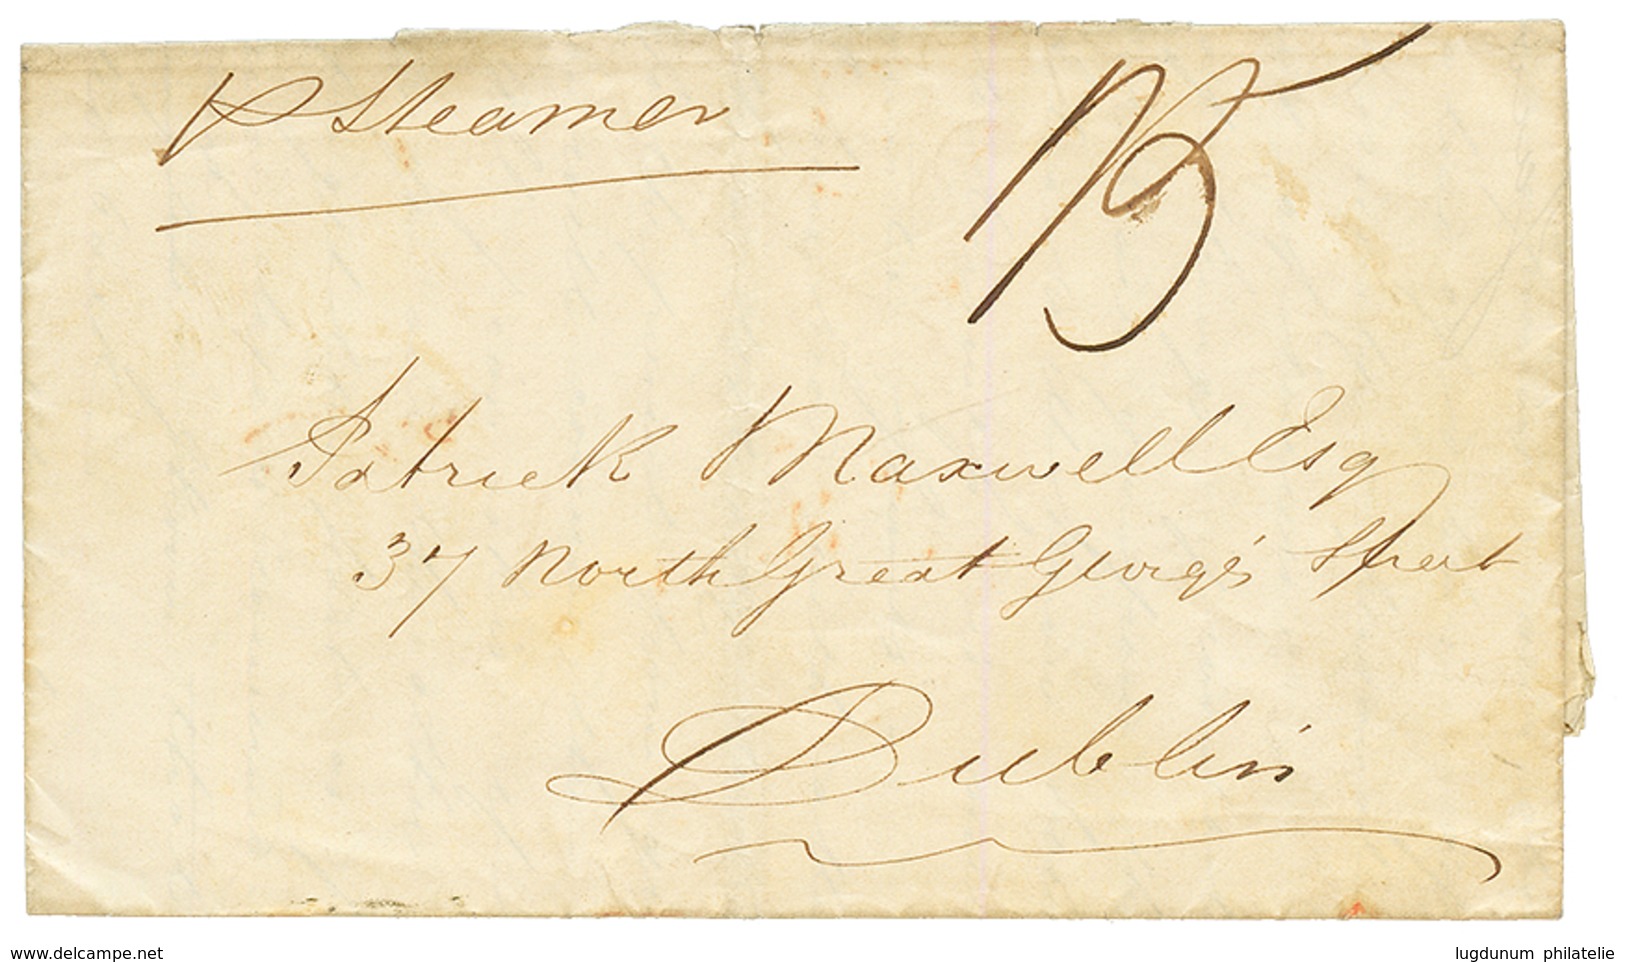 p Steamer
Patrick Maxwell Esq
37 North Great George's Street
Dublin
www.delcampe.net
lugdunum philatelie